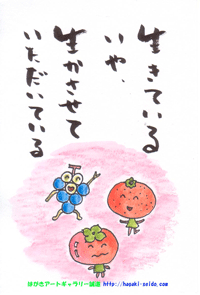 生きている
いや、
生かさせて
いただいている
はがきアートギャラリー誠道 http://hagaki-seido.com